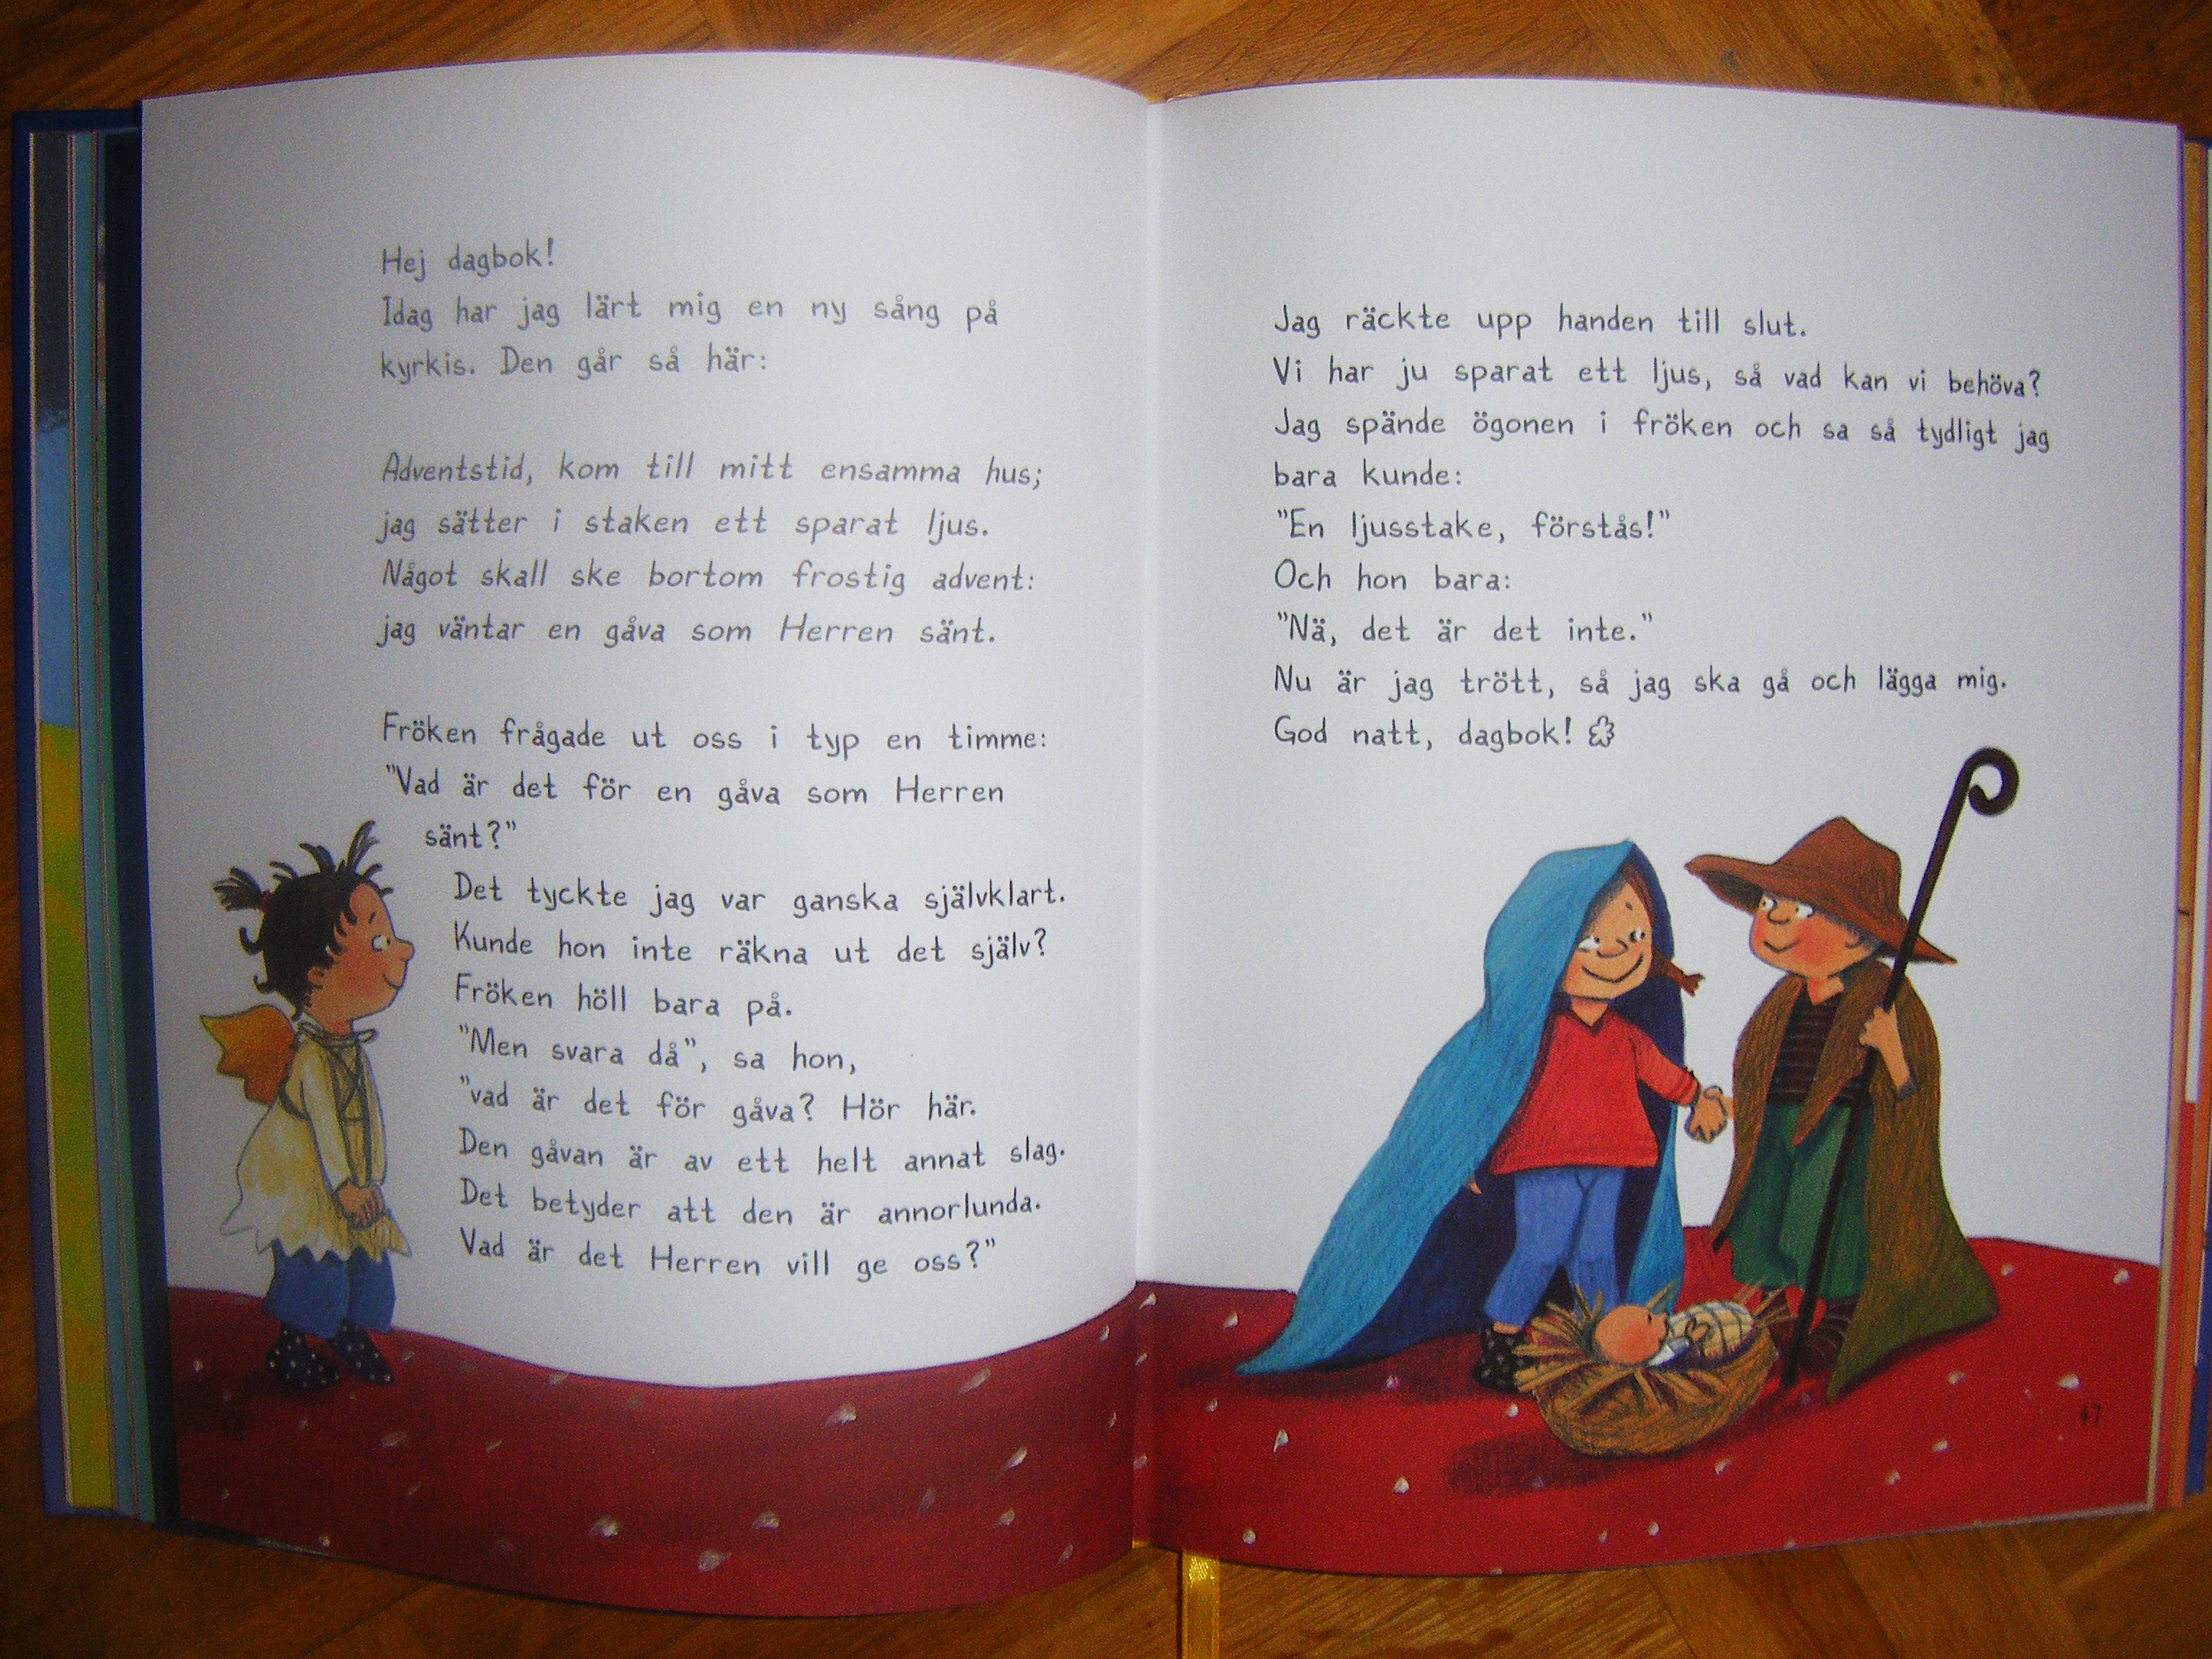 Hej dagbok!
Idag har jag lärt mig en ny sång på
kyrkis. Den går så här:
Adventstid, kom till mitt ensamma hus;
jag sätter i staken ett sparat ljus.
Något skall ske bortom frostig advent:
jag väntar en gåva som Herren sänt.
Fröken frågade ut oss i typ en timme:
"Vad är det för en gåva som Herren
sänt?"
Det tyckte jag var ganska självklart.
Kunde hon inte räkna ut det själv?
Fröken höll bara på.
"Men svara då", sa hon,
"vad är det för gåva? Hör här.
Den gåvan är av ett helt annat slag.
Det betyder att den är annorlunda.
Vad är det Herren vill ge oss?"
Jag räckte upp handen till slut.
Vi har ju sparat ett ljus, så vad kan vi behöva?
Jag spände ögonen i fröken och sa så tydligt jag
bara kunde:
"En ljusstake, förstås!"
Och hon bara:
"Nä, det är det inte."
Nu är jag trött, så jag ska gå och lägga mig.
God natt, dagbok!